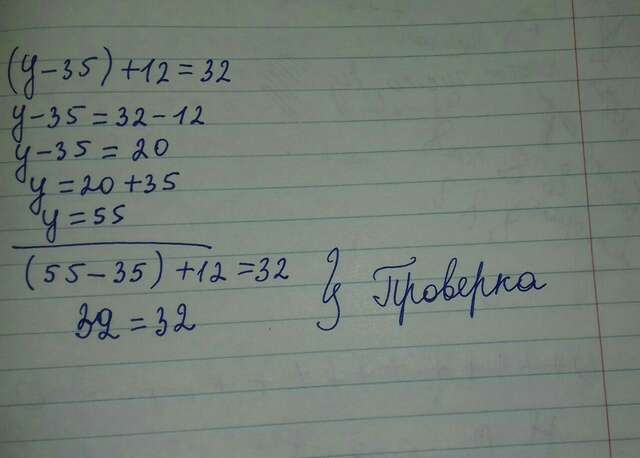 (y-35)+12=32
y-35=32-12
y-35=20
y=20+35
y=55
(55-35)+12=32 } Проверка
32=32